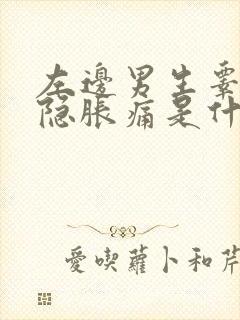 左邊男生睪
隐脹痛是什
愛喫蘿卜和芹